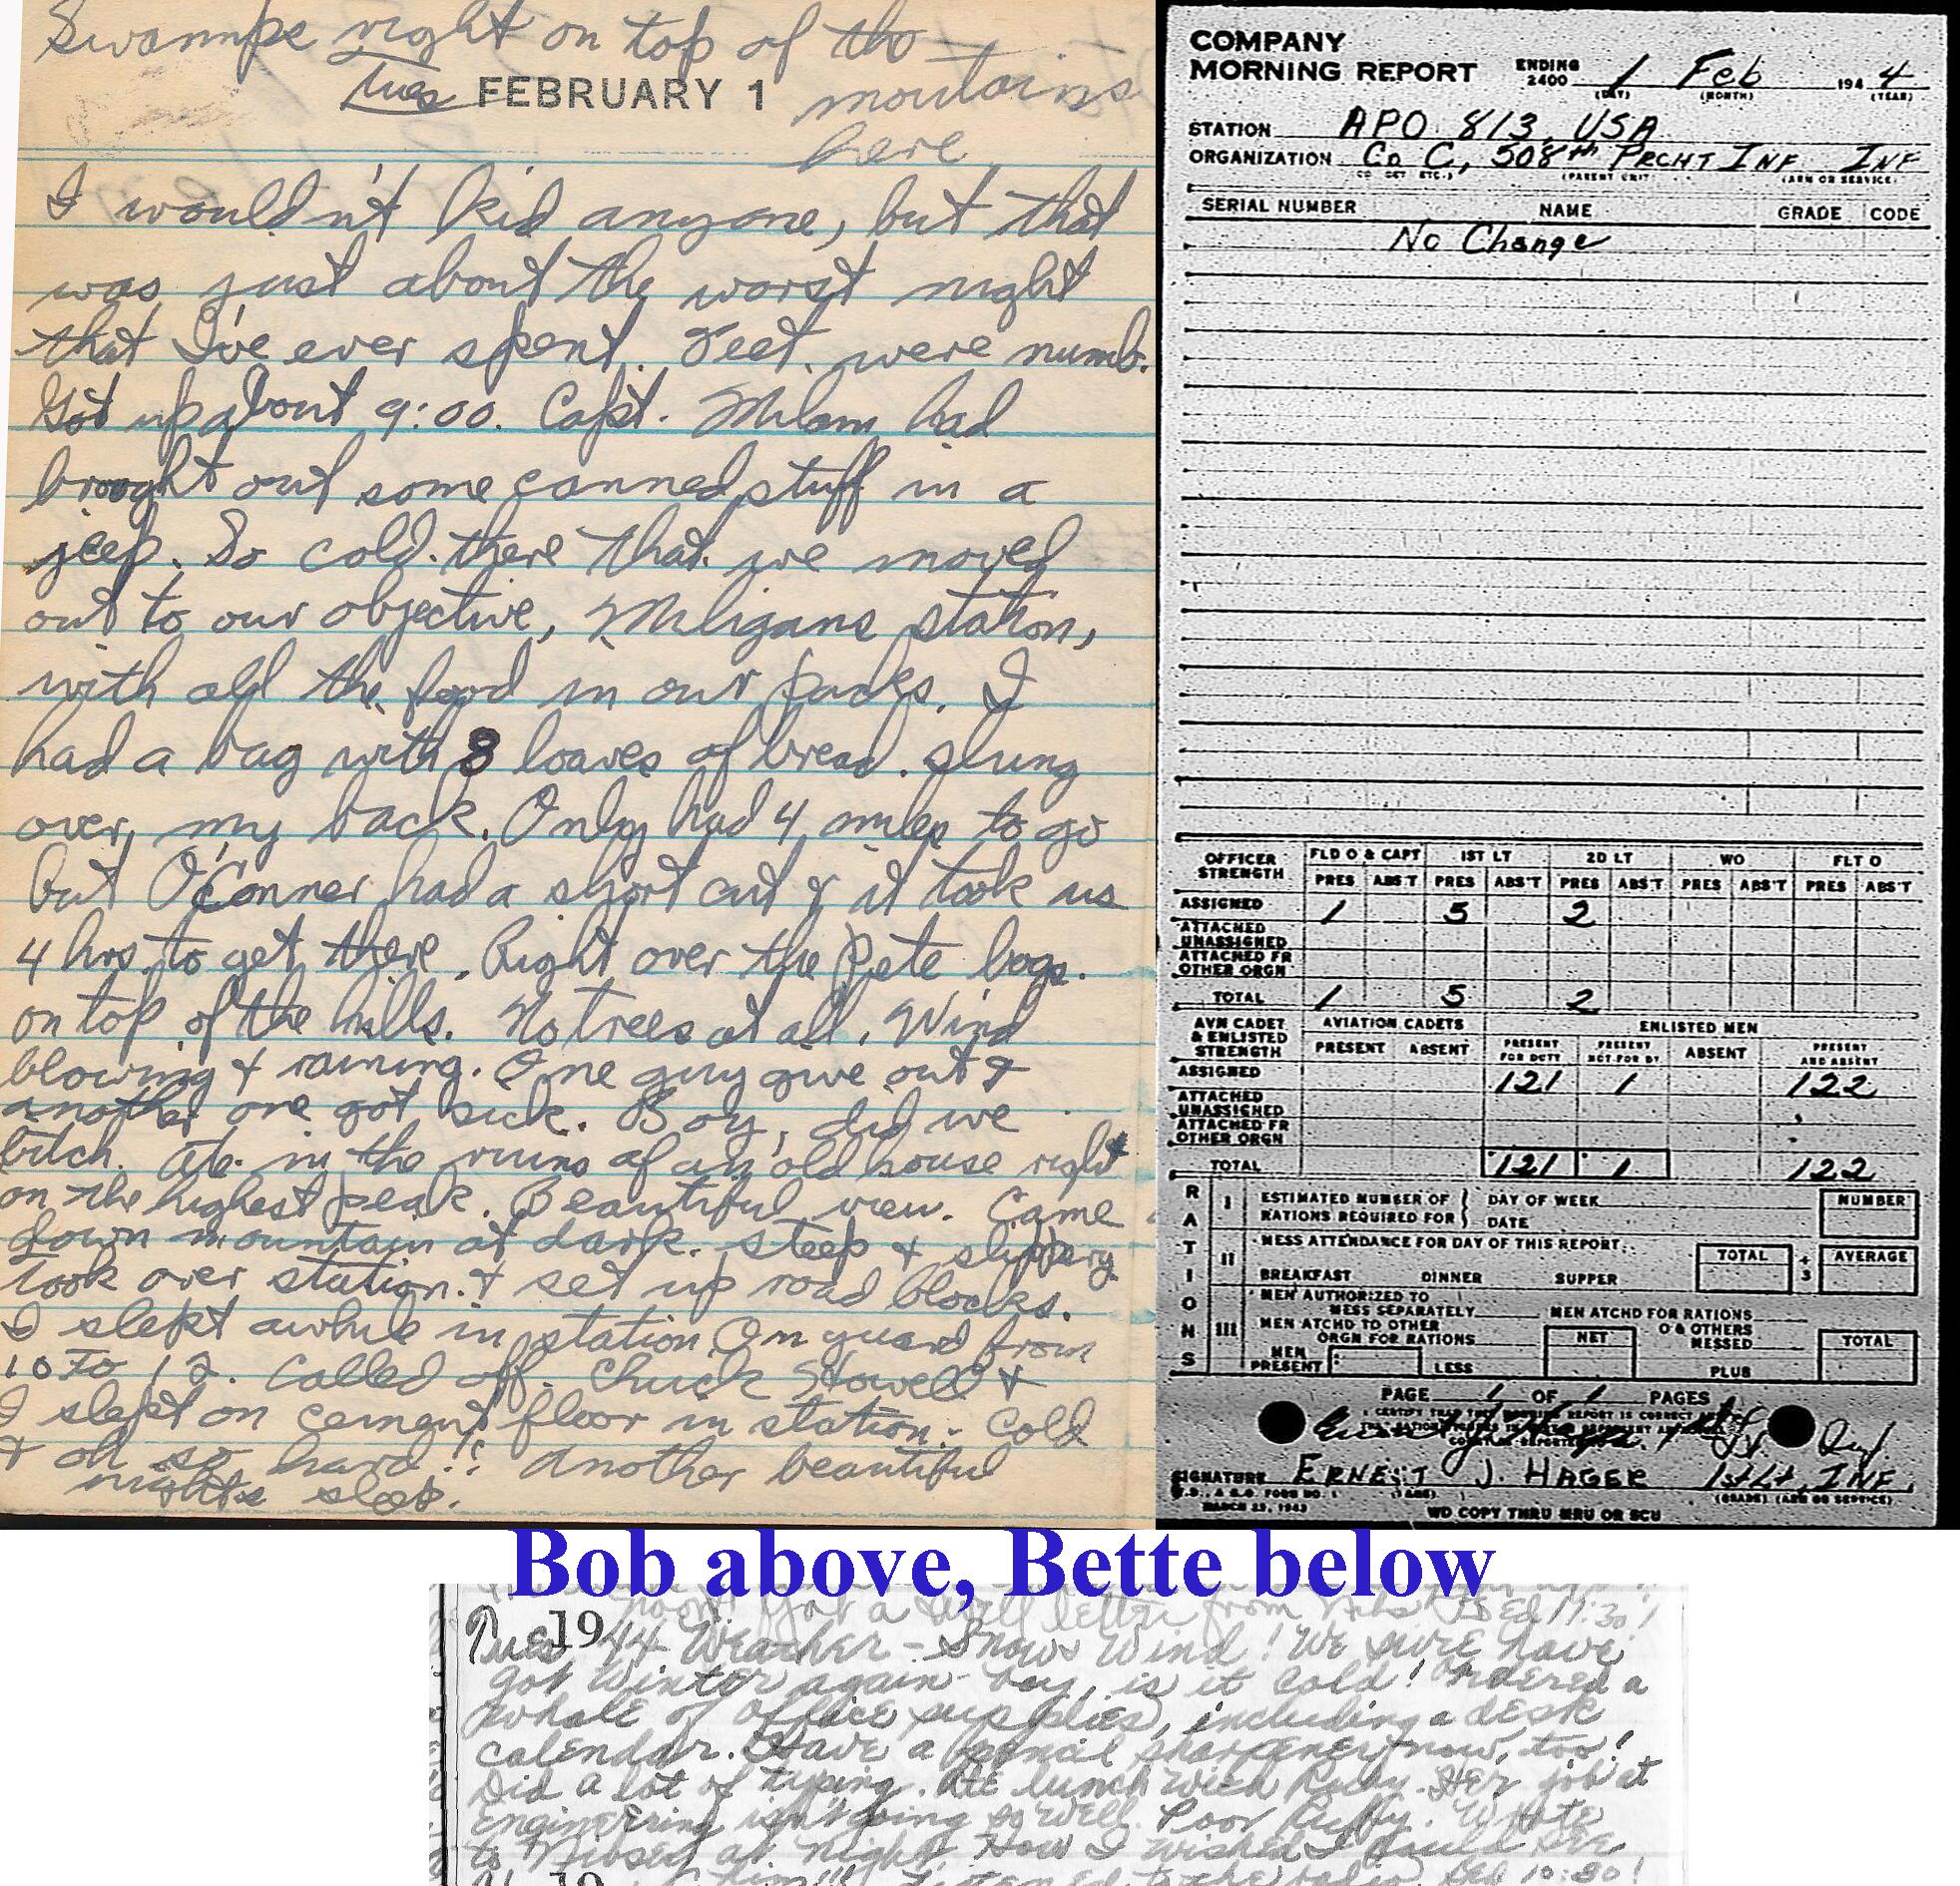 Swamps right on top of the
Tues FEBRUARY 1 moutains
here
I wouldn't kid anyone, but that
was just about the worst night
that I've ever spent. Feet were numb.
Got up about 9:00. Capt. Milam had
brought out some canned stuff in a
jeep. So cold there that we moved
out to our objective, Miligans station,
with all the food in our packs. I
had a bag with 8 loaves of bread slung
over my back. Only had 4 miles to go
but O'Conner had a short cut & it took us
4 hrs to get there. Right over the Pete bogs.
on top of the hills. No trees at all. Wind
blowing & raining. One guy give out &
another one got sick. Boy, did we
bitch. Ate in the ruins of an old house right
on the highest peak. Beautiful view. Came
down mountain at dark. steep & slippery
Took over station & set up road blocks.
I slept awhile in station. On guard from
10 to 12. Called off. Chuck Stowell &
I slept on cement floor in station. Cold
& oh so hard!! Another beautiful
nights sleep.
COMPANY
MORNING REPORT ENDING 2400 1 Feb 1944
(DAY) (MONTH) (YEAR)
STATION APO 813, USA
ORGANIZATION Co C, 508th PRCHT INF INF
(PARENT UNIT) (ARM OR SERVICE)
SERIAL NUMBER NAME GRADE CODE
No Change
OFFICER STRENGTH FLD O & CAPT 1ST LT 2D LT WO FLT O
PRES ABS'T PRES ABS'T PRES ABS'T PRES ABS'T PRES ABS'T
ASSIGNED 1 5 2
ATTACHED UNASSIGNED
ATTACHED FR OTHER ORGN
TOTAL 1 5 2
AVN CADET & ENLISTED STRENGTH AVIATION CADETS ENLISTED MEN
PRESENT ABSENT PRESENT FOR DUTY PRESENT NOT FOR DY ABSENT PRESENT AND ABSENT
ASSIGNED 121 1 122
ATTACHED UNASSIGNED
ATTACHED FR OTHER ORGN
TOTAL 121 1 122
RATIONS
I ESTIMATED NUMBER OF RATIONS REQUIRED FOR DAY OF WEEK NUMBER
DATE
II MESS ATTENDANCE FOR DAY OF THIS REPORT: TOTAL ÷ 3 AVERAGE
BREAKFAST DINNER SUPPER
III MEN AUTHORIZED TO MESS SEPARATELY MEN ATCHD FOR RATIONS
MEN ATCHD TO OTHER ORGN FOR RATIONS NET O & OTHERS MESSED TOTAL
MEN PRESENT LESS PLUS
PAGE 1 OF 1 PAGES
I CERTIFY THAT THIS REPORT IS CORRECT
SIGNATURE ERNEST J. HAGER 1st Lt, INF
(NAME) (GRADE) (ARM OR SERVICE)
MARCH 23, 1943
WD COPY THRU MRU OR SCU
Bob above, Bette below
Got a swell letter from Nibs
Tues 1944 Weather - Snows Wind! We sure have
got Winter again boy, is it cold! Ordered a
whole of office supplies, including a desk
calendar. Have a pencil sharpener now, too!
Did a lot of typing. Ate lunch with Ruby. Her job at
engineering isn't going so well. Poor Ruffy. Wrote
to Nibsey at night. How I wished I could see
him!!! Listened to the radio. Bed 10:30!
19